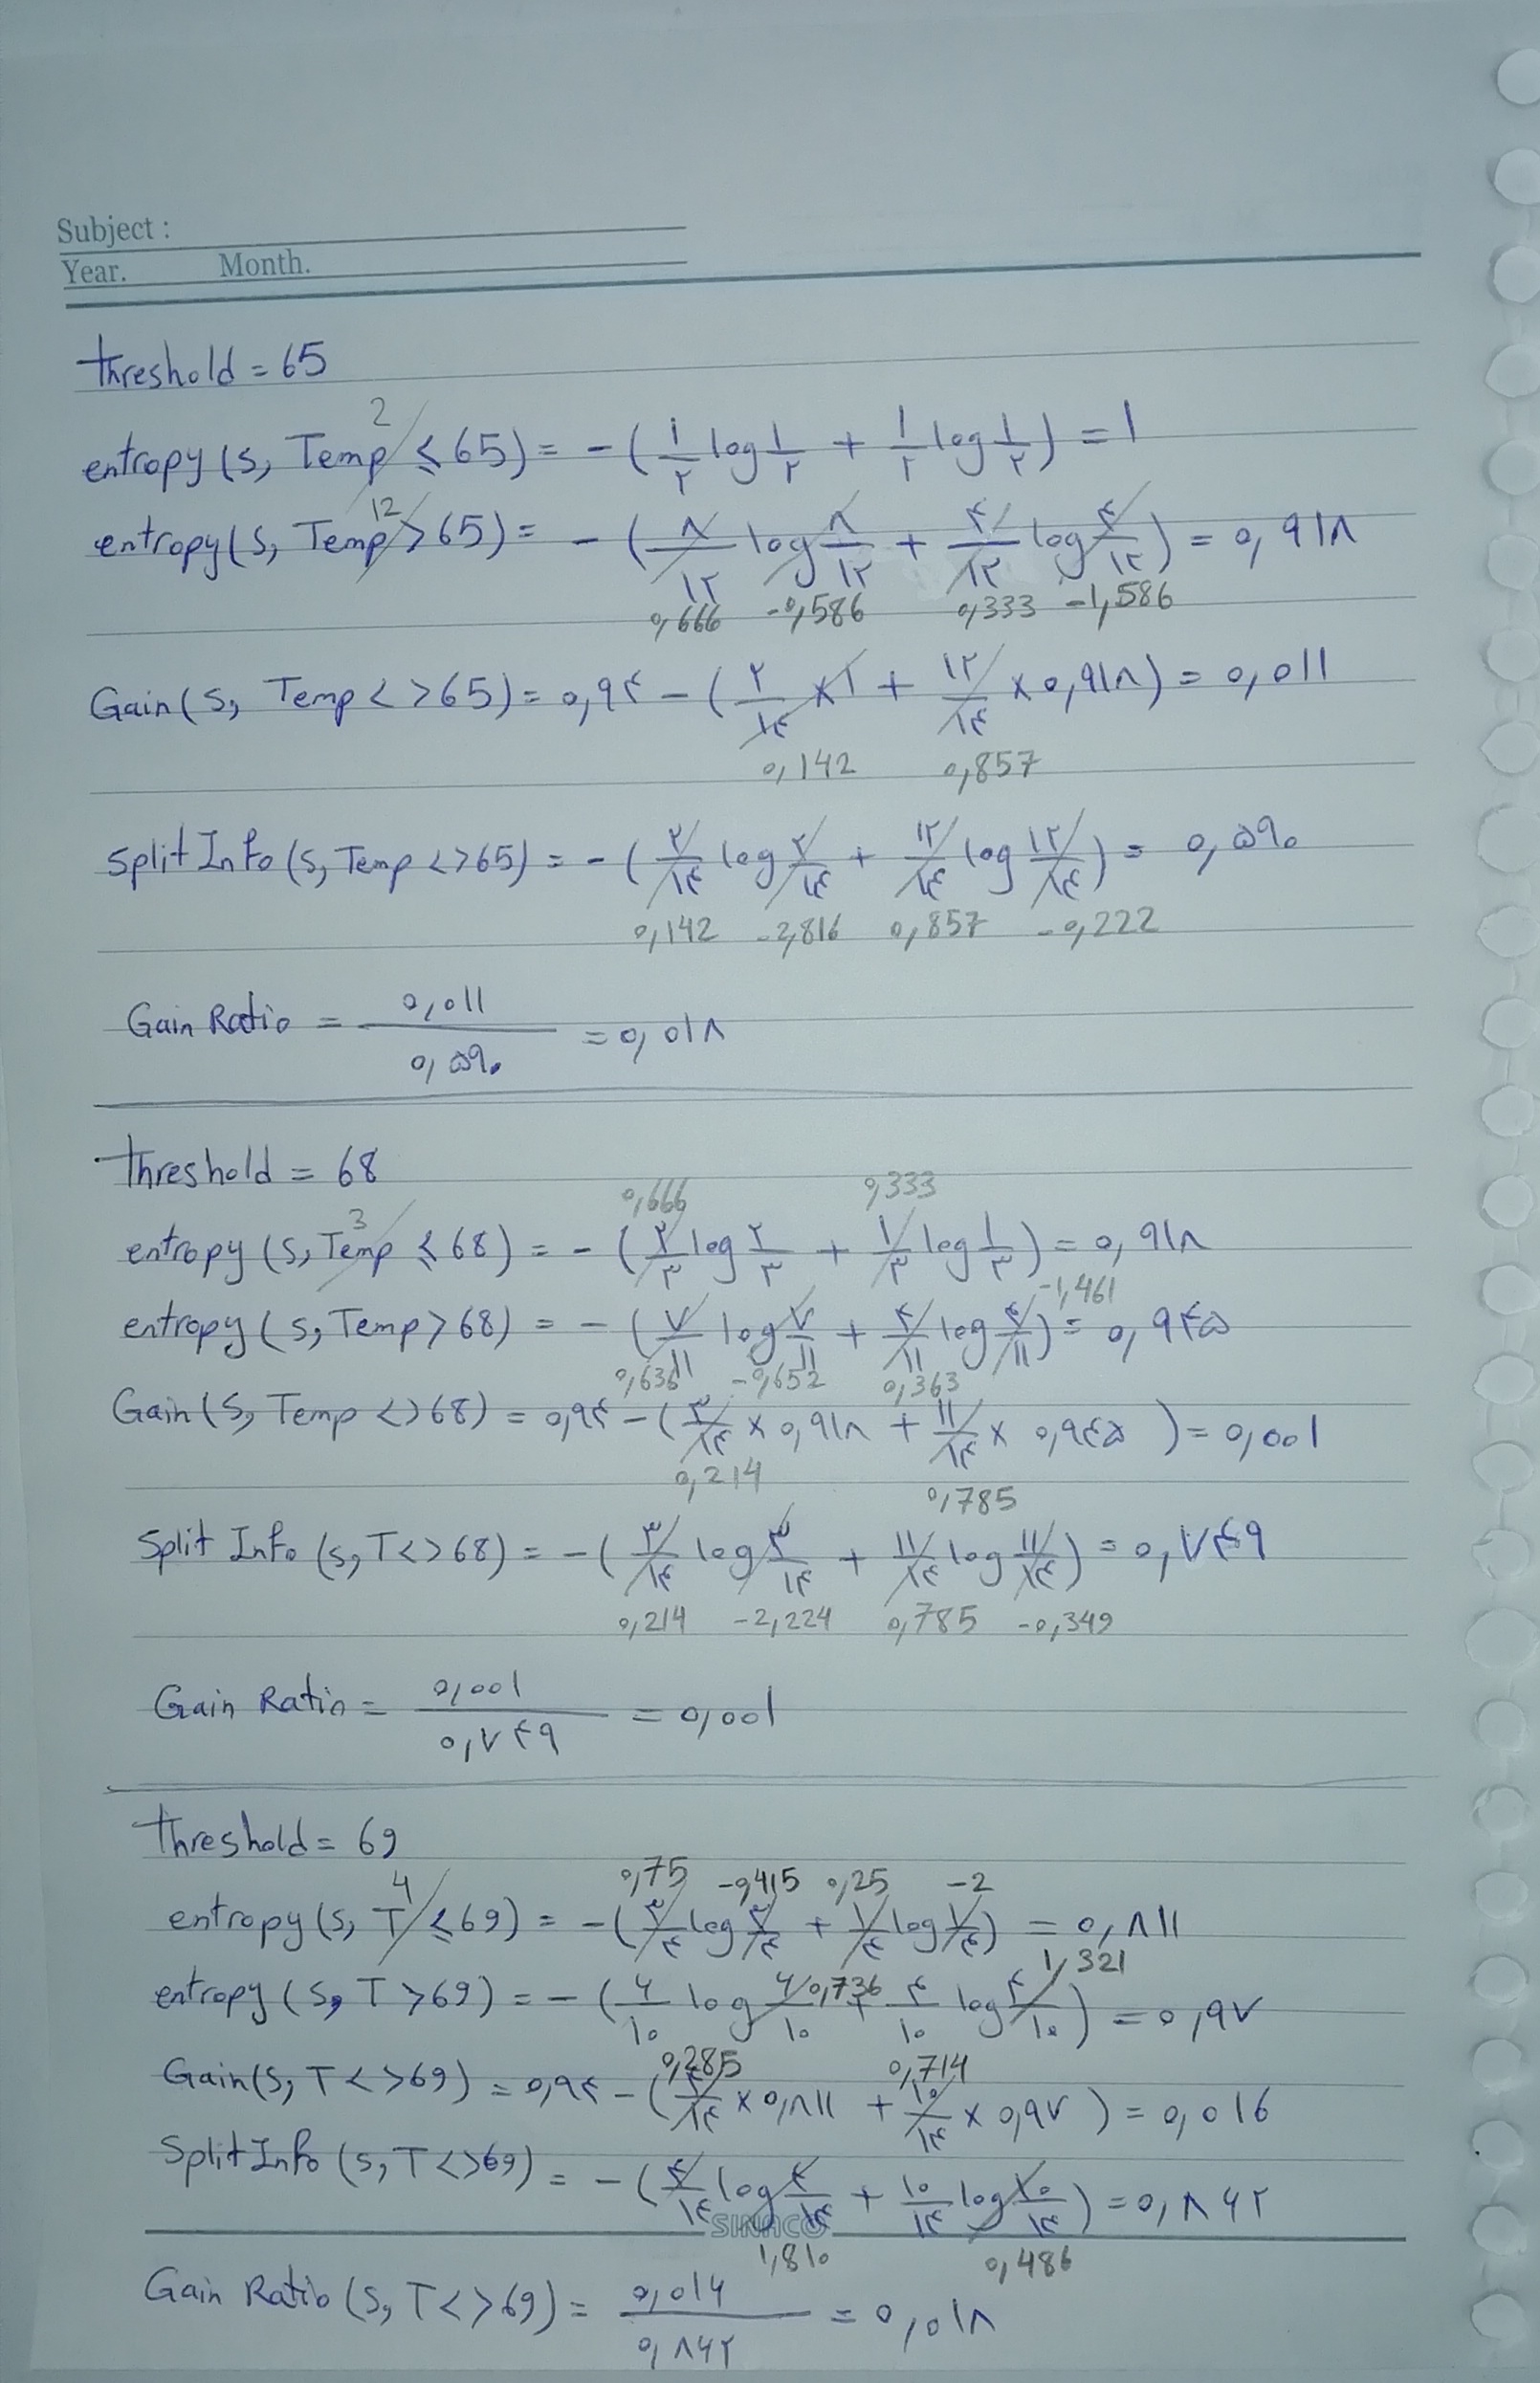 Subject :
Year. Month.
threshold = 65
2
entropy (S, Temp ≤ 65) = - (۱/۲ log ۱/۲ + ۱/۲ log ۱/۲) = ۱
12
entropy (S, Temp > 65) = - (۸/۱۲ log ۸/۱۲ + ۴/۱۲ log ۴/۱۲) = ۰,۹۱۸
0,666 -0,586 0,333 -1,586
Gain (S, Temp < > 65) = ۰,۹۴ - (۲/۱۴ × ۱ + ۱۲/۱۴ × ۰,۹۱۸) = ۰,۰۱۱
0,142 0,857
Split Info (S, Temp < > 65) = - (۲/۱۴ log ۲/۱۴ + ۱۲/۱۴ log ۱۲/۱۴) = ۰,۵۹۰
0,142 -2,816 0,857 -0,222
Gain Ratio = ۰,۰۱۱/۰,۵۹۰ = ۰,۰۱۸
threshold = 68
3 0,666 0,333
entropy (S, Temp ≤ 68) = - (۲/۳ log ۲/۳ + ۱/۳ log ۱/۳) = ۰,۹۱۸
-1,461
entropy (S, Temp > 68) = - (۷/۱۱ log ۷/۱۱ + ۴/۱۱ log ۴/۱۱) = ۰,۹۴۵
0,636 -0,652 0,363
Gain (S, Temp < > 68) = ۰,۹۴ - (۳/۱۴ × ۰,۹۱۸ + ۱۱/۱۴ × ۰,۹۴۵) = ۰,۰۰۱
0,214 0,785
Split Info (S, T < > 68) = - (۳/۱۴ log ۳/۱۴ + ۱۱/۱۴ log ۱۱/۱۴) = ۰,۷۴۹
0,214 -2,224 0,785 -0,349
Gain Ratio = ۰,۰۰۱/۰,۷۴۹ = ۰,۰۰۱
threshold = 69
4 0,75 -0,415 0,25 -2
entropy (S, T ≤ 69) = - (۳/۴ log ۳/۴ + ۱/۴ log ۱/۴) = ۰,۸۱۱
0,736 1,321
entropy (S, T > 69) = - (۶/۱۰ log ۶/۱۰ + ۴/۱۰ log ۴/۱۰) = ۰,۹۷
0,285 0,714
Gain (S, T < > 69) = ۰,۹۴ - (۴/۱۴ × ۰,۸۱۱ + ۱۰/۱۴ × ۰,۹۷) = 0,016
Split Info (S, T < > 69) = - (۴/۱۴ log ۴/۱۴ + ۱۰/۱۴ log ۱۰/۱۴) = ۰,۸۶۲
SINACO
1,810 0,486
Gain Ratio (S, T < > 69) = ۰,۰۱۶/۰,۸۶۲ = ۰,۰۱۸